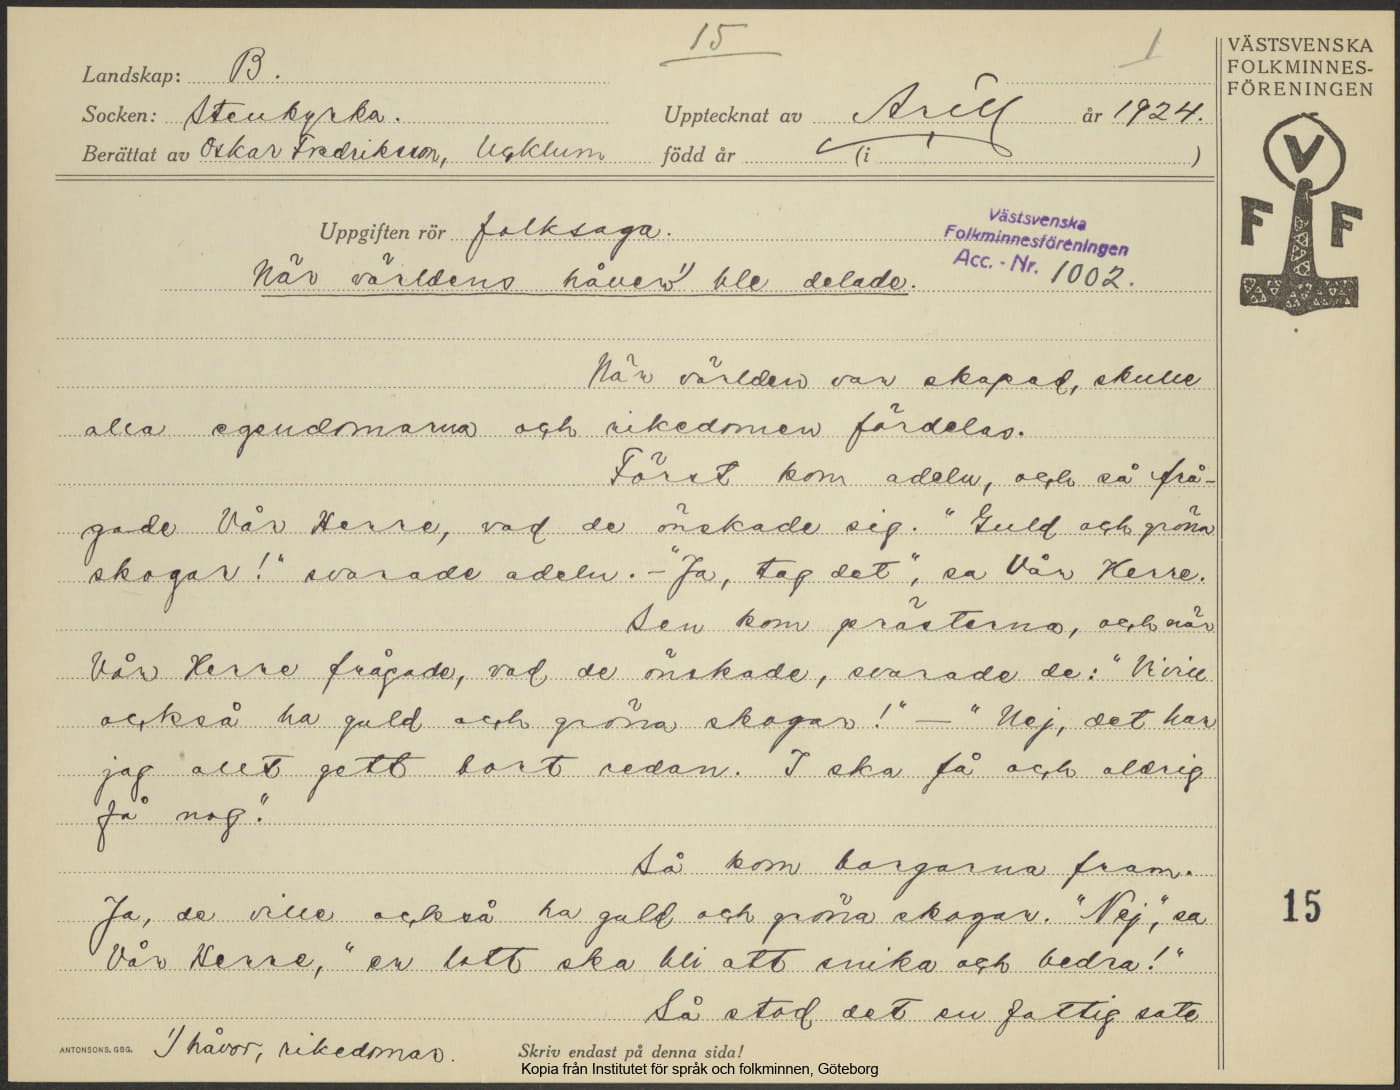 15
1
VÄSTSVENSKA
FOLKMINNES-
FÖRENINGEN
Landskap: B.
Socken: Stenkyrka. Upptecknat av Arill år 1924.
Berättat av Oskar Fredriksson, född år (i )
V
F F
Uppgiften rör folksaga.
Västsvenska
Folkminnesföreningen
Acc.-Nr. 1002.
När världens håver 1) ble delade.
När världen var skapad, skulle
alla egendomarna och rikedomen fördelas.
Först kom adeln, och så frå-
gade Vår Herre, vad de önskade sig. "Guld och gröna
skogar!" svarade adeln. – "Ja, tag det", sa Vår Herre.
Sen kom prästerna, och när
Vår Herre frågade, vad de önskade, svarade de: "Vi vill
också ha guld och gröna skogar!" – "Nej, det har
jag allt gett bort redan. I ska få och aldrig
få nog."
Så kom borgarna fram.
Ja, de ville också ha guld och gröna skogar. "Nej", sa
Vår Herre, "er lott ska bli att snika och bedra!"
Så stod det en fattig sate
15
ANTONSONS, GBG. 1) håvor, rikedomar. Skriv endast på denna sida!
Kopia från Institutet för språk och folkminnen, Göteborg